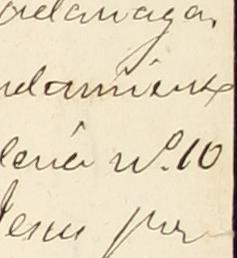 ordenaga.
ndamiento
lería Nº. 10
Jesus por